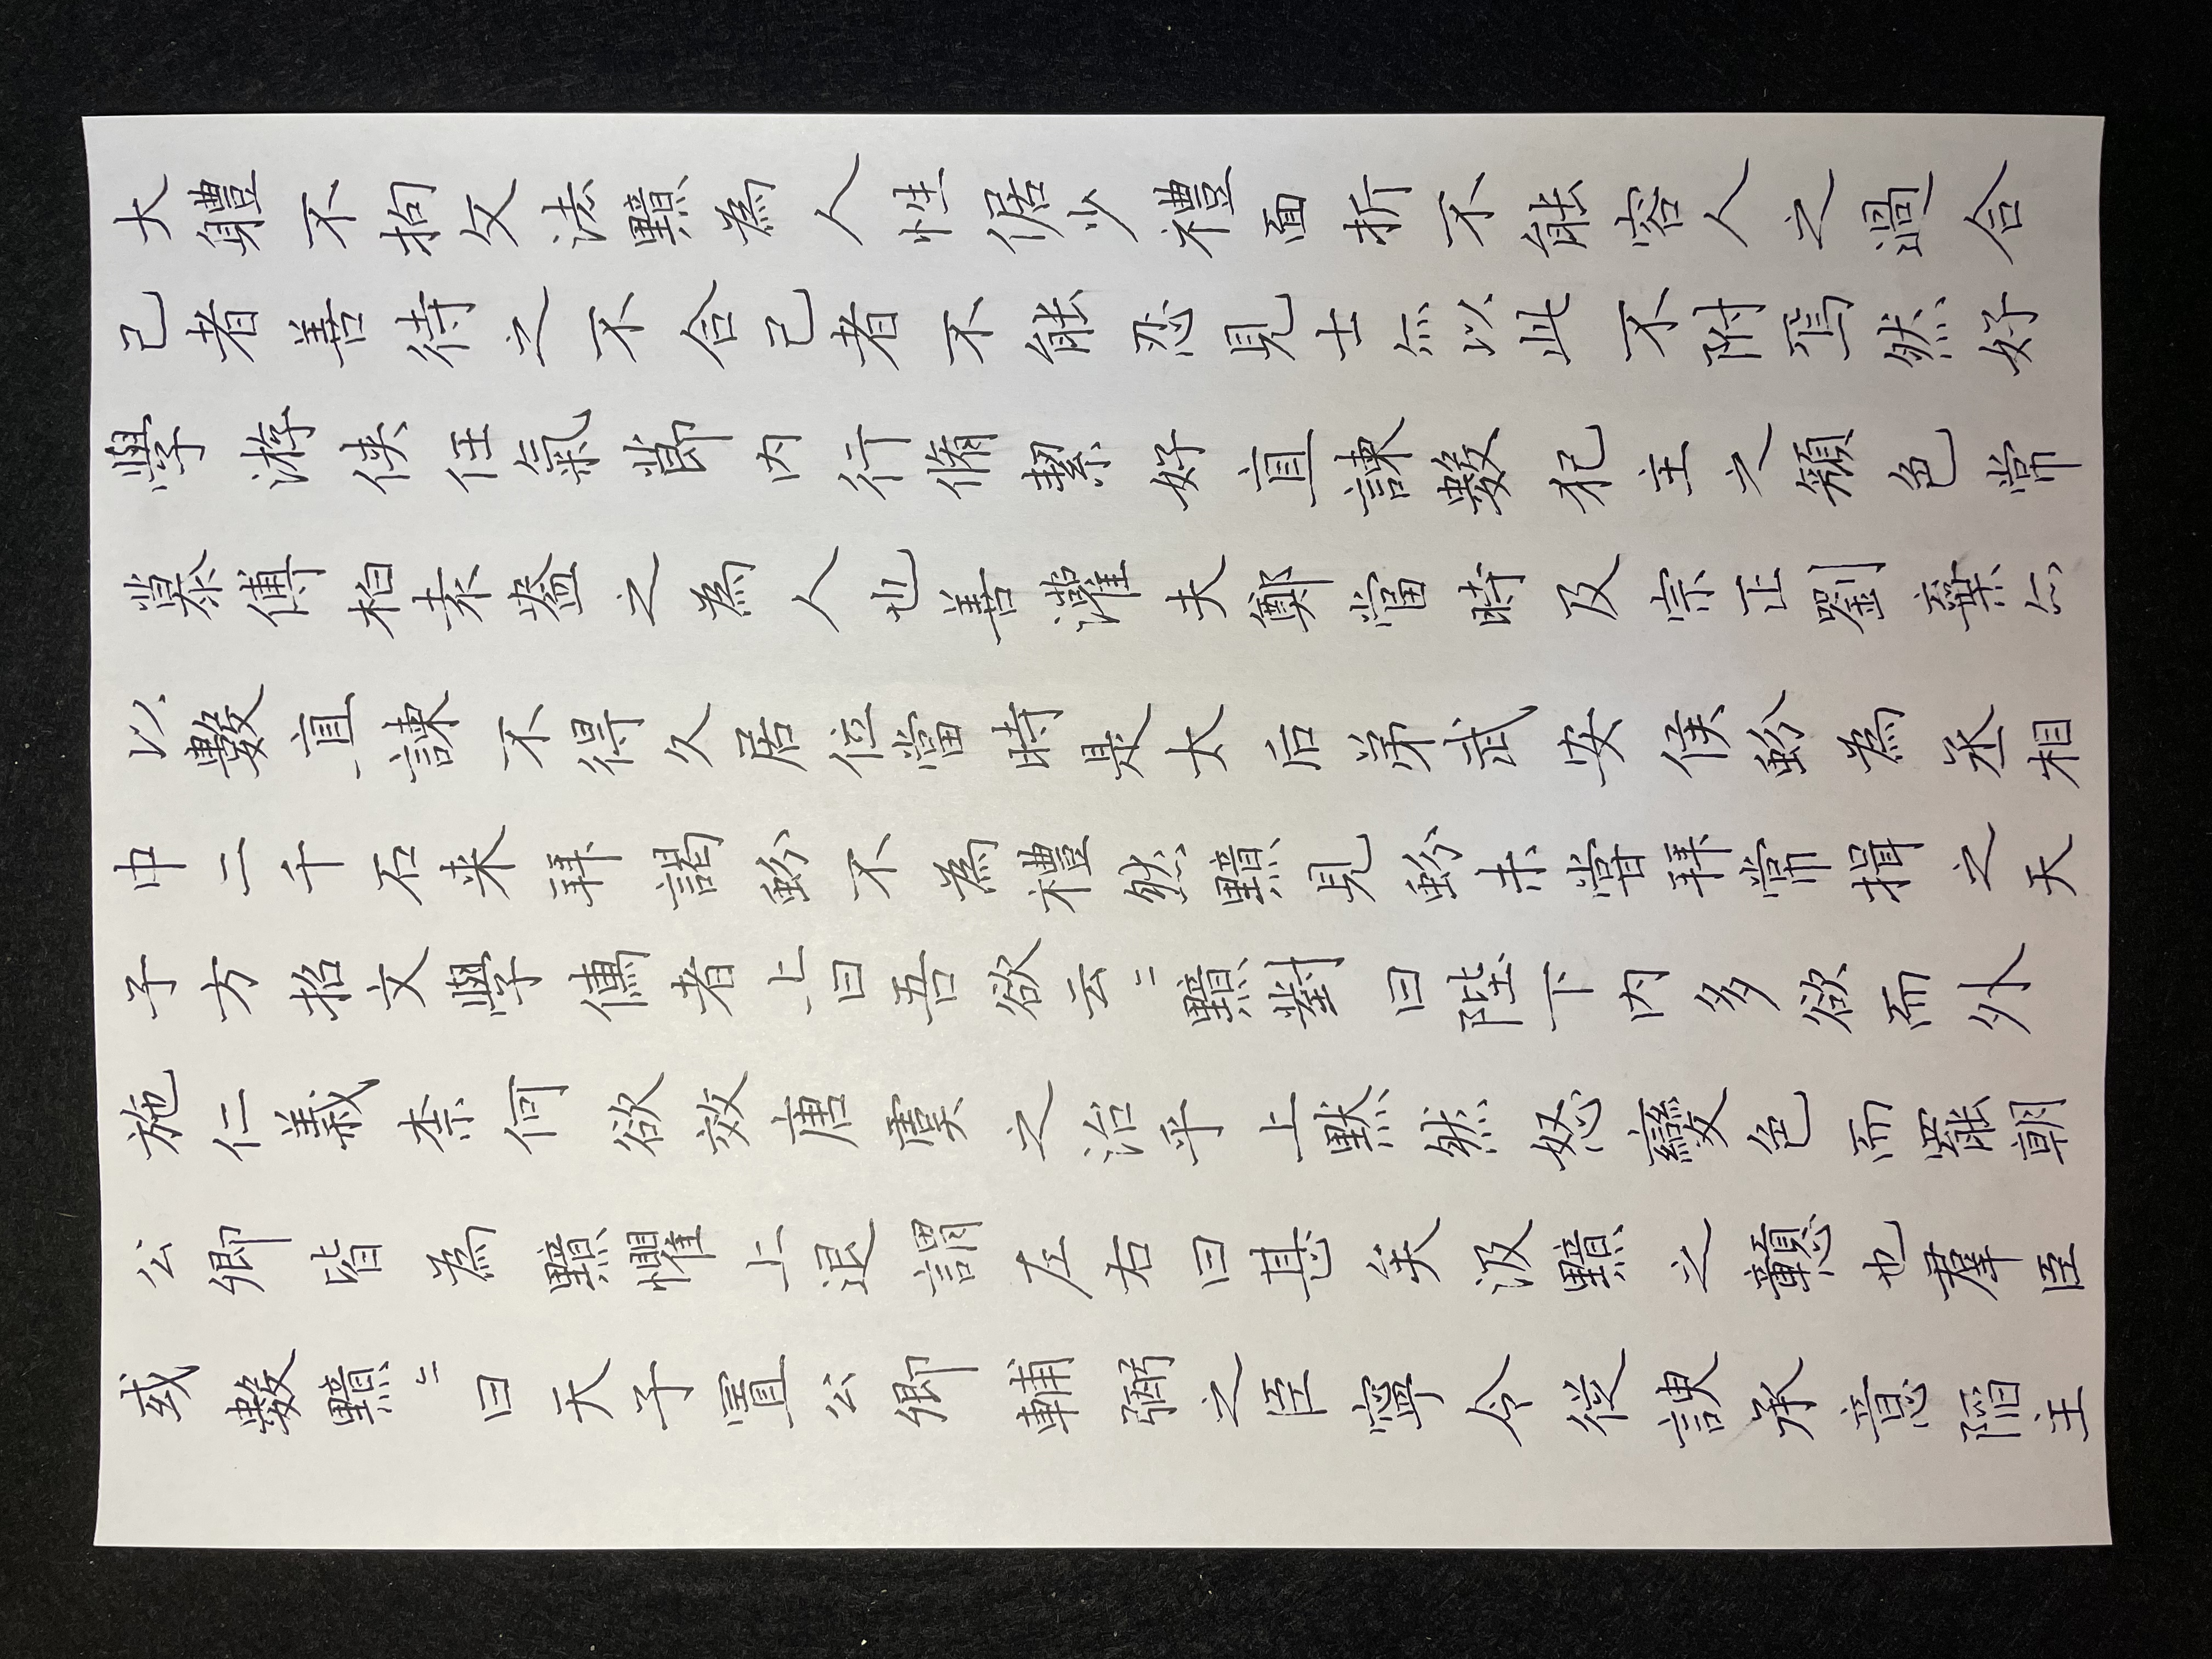 大軆不拘文法黯為人性倨少禮面折不能容人之過合
己者善待之不合己者不能忍見士亦以此不附焉然好
學游俠任氣節内行脩絜好直諫數犯主之顏色常
慕傅柏袁盎之為人也善灌夫鄭當時及宗正劉棄亦
以數直諫不得久居位當時是太后弟武安侯蚡為丞相
中二千石来拜謁蚡不為禮然黯見蚡未嘗拜常揖之天
子方招文學儒者上曰吾欲云〻黯對曰陛下内多欲而外
施仁義柰何欲效唐虞之治乎上默然怒變色而罷朝
公卿皆為黯懼上退謂左右曰甚矣汲黯之戇也羣臣
或數黯〻曰天子置公卿輔弼之臣寧令從諛承意陷主